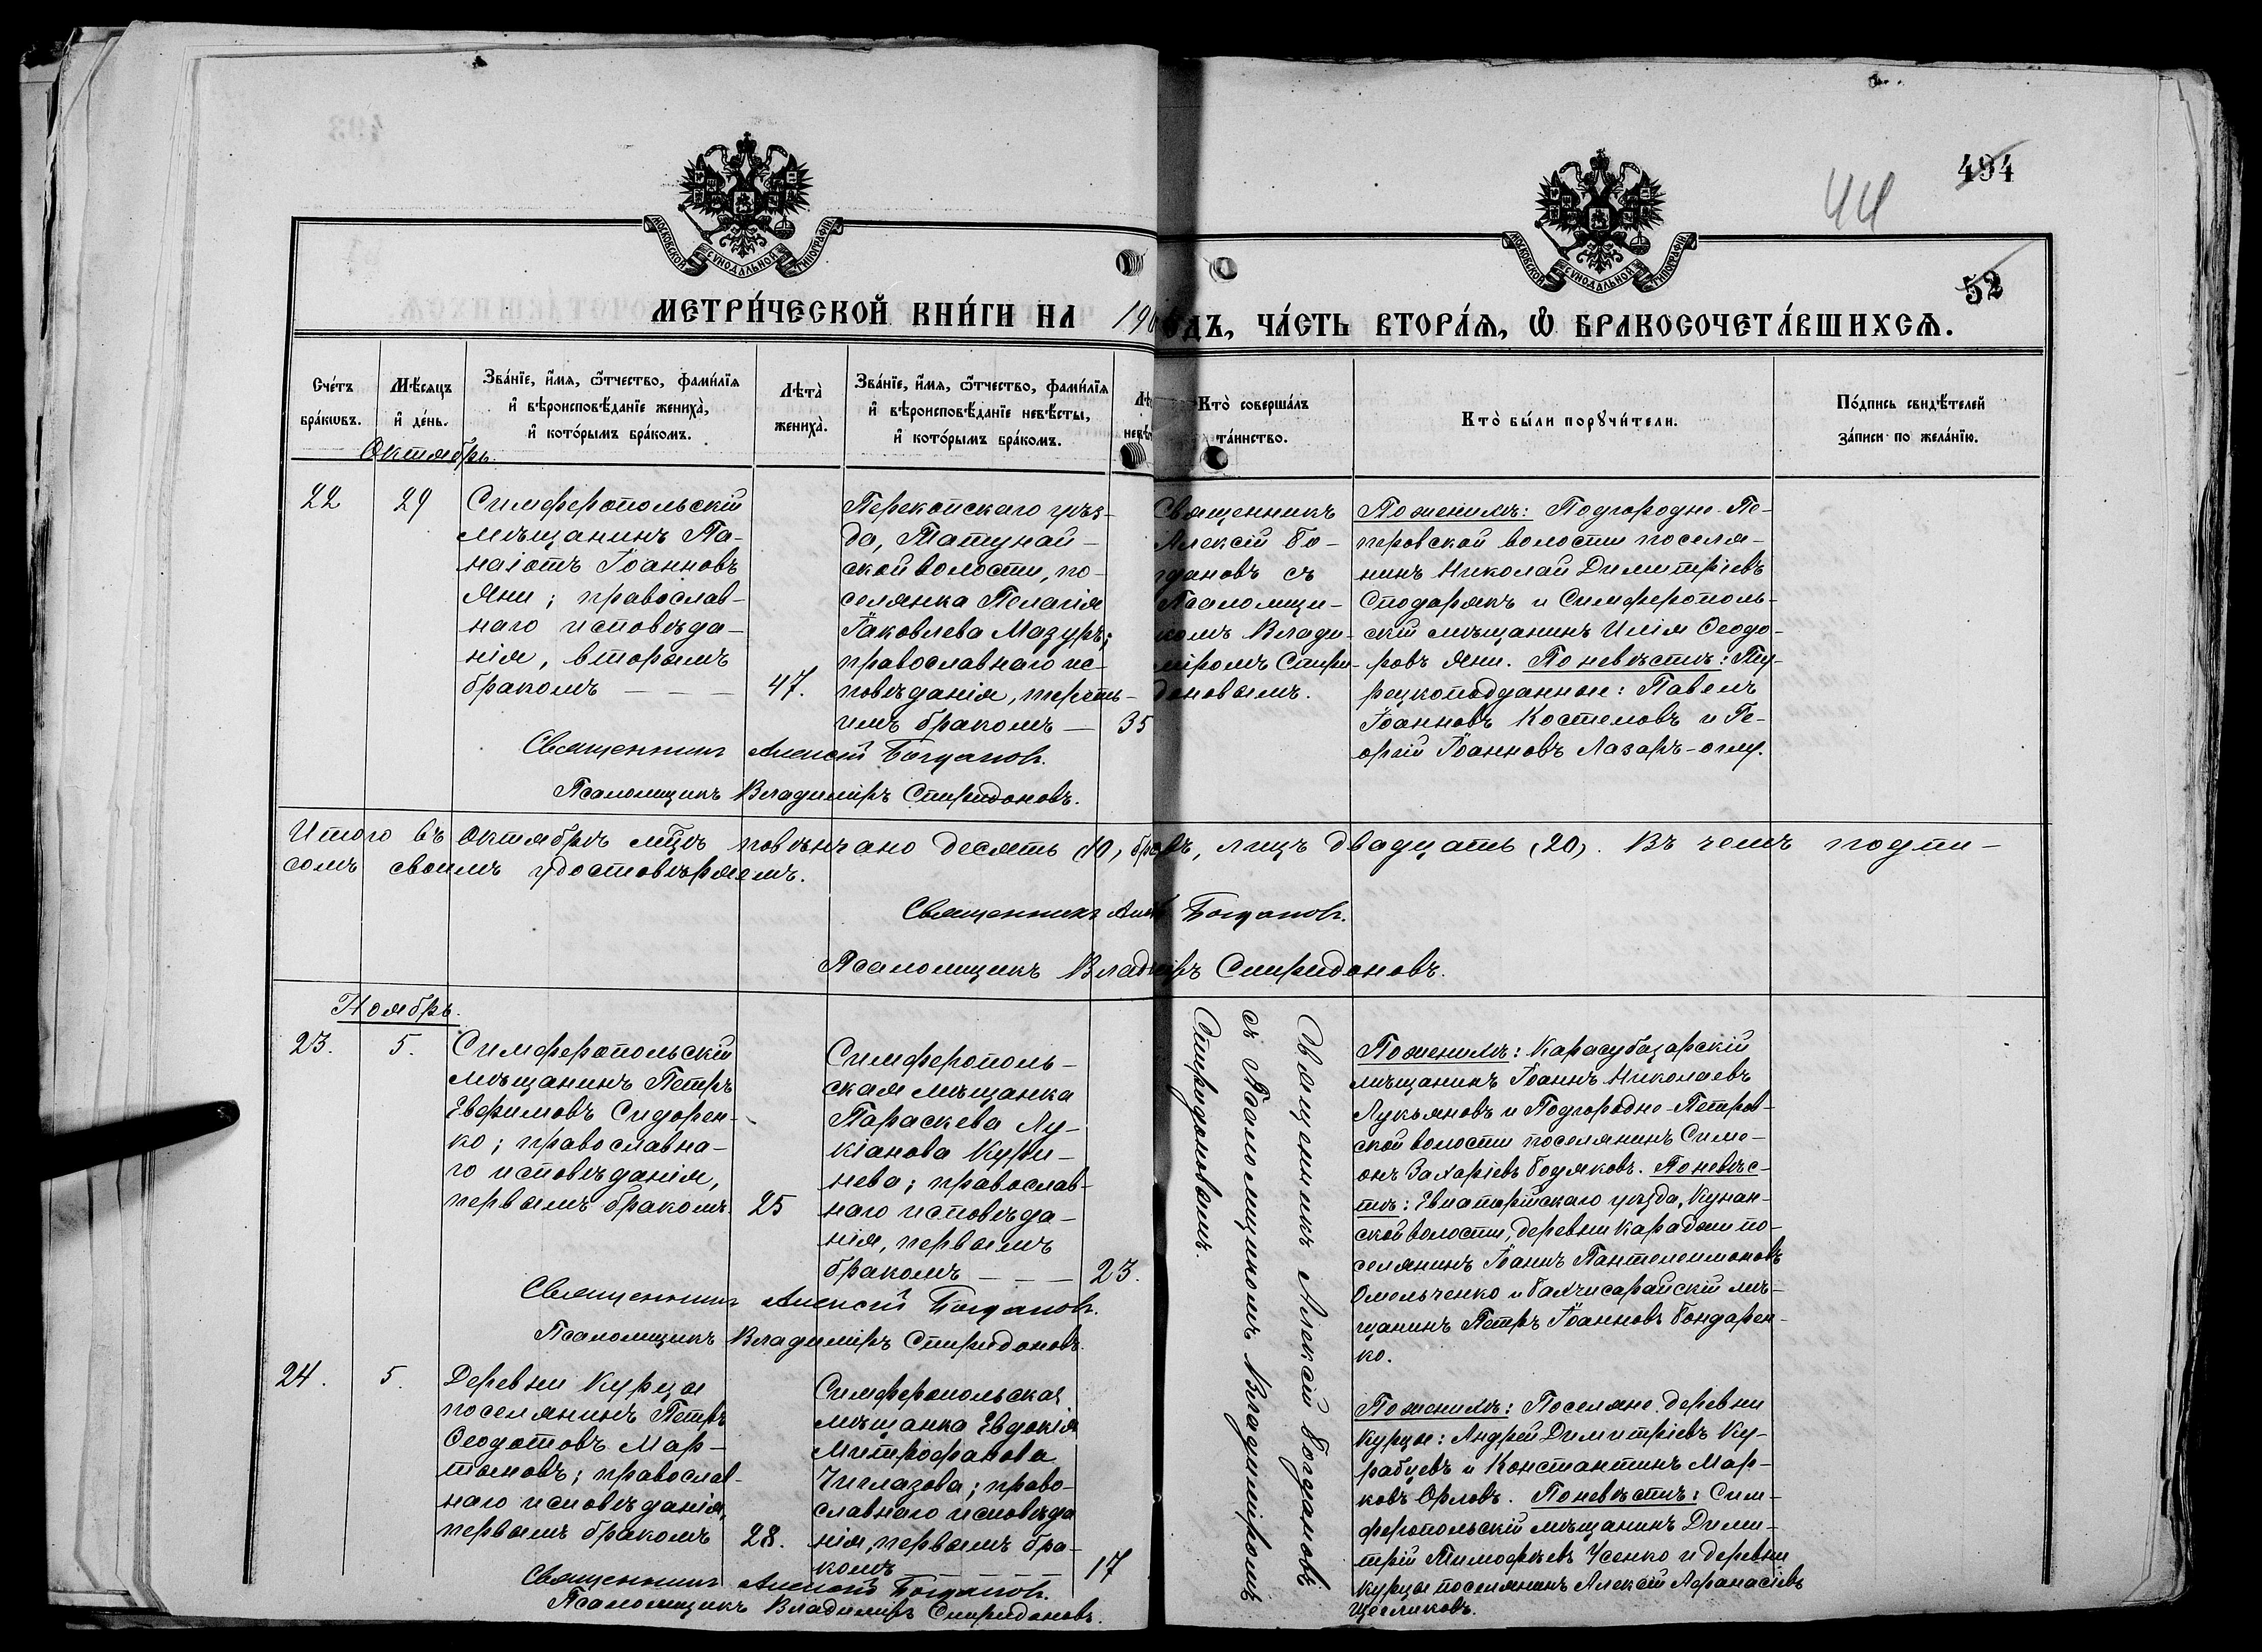 494
44
52
МОСКОВСКОЙ СѴНОДАЛЬНОЙ ТИПОГРАФІИ
МОСКОВСКОЙ СѴНОДАЛЬНОЙ ТИПОГРАФІИ
МЕТРИ́ЧЕСКОЙ КНИ́ГИ НА 190
ОДЪ, ЧА́СТЬ ВТОРА́Ѧ, Ѽ БРАКОСОЧЕТА́ВШИХСѦ.
Сче́тъ
бра́кѡвъ.
Мѣ́сяцъ
и҆ де́нь.
Зва́нїе, и҆́мя, ѻ҆́тчество, фами́лїя
и҆ вѣроисповѣ́данїе жениха̀,
и҆ кото́рымъ бра́комъ.
Лѣта̀
жениха̀.
Зва́нїе, и҆́мя, ѻ҆́тчество, фами́лїя
и҆ вѣроисповѣ́данїе невѣ́сты,
и҆ кото́рымъ бра́комъ.
Кто̀ совершáлъ
та́инство.
Кто̀ бы́ли порꙋчи́тели.
По́дпись свидѣ́телей
за́писи по жела́нїю.
Октябрь.
22
29
Симферопольскій
мѣщанинъ Па-
наіотъ Іоанновъ
Яни; православ-
наго исповѣда-
нія, вторымъ
бракомъ — — —
47.
Перекопскаго уѣз-
да, Татунай-
ской волости, по-
селянка Пелагія
Іаковлева Мазуръ;
православнаго ис-
повѣданія, треть-
имъ бракомъ —
35
Священникъ
Алексій Бо-
гдановъ съ
Псаломщи-
комъ Влади-
міромъ Спири-
доновымъ.
По женихѣ: Подгородне-Пе-
тровской волости поселя-
нинъ Николай Димитріевъ
Сподарякъ и Симферополь-
скій мѣщанинъ Илія Ѳеодо-
ровъ Яни. По невѣстѣ: Ту-
рецкоподданные: Павелъ
Іоанновъ Костеловъ и Ге-
оргій Іоанновъ Лазаръ-оглу.
Священникъ Алексій Богдановъ.
Псаломщикъ Владиміръ Спиридоновъ.
Итого въ октябрѣ мѣцѣ повѣнчано десять (10) бр въ, лицъ двадцать (20). Въ чемъ подпи-
сомъ своимъ удостовѣряемъ.
Священникъ Богдановъ.
Псаломщикъ Спиридоновъ.
Ноябрь.
23.
5.
Симферопольскій
мѣщанинъ Петръ
Евфимовъ Сидорен-
ко; православна-
го исповѣданія,
первымъ бракомъ.
25
Симферополь-
ская мѣщанка
Параскева Лу-
кіанова Кури-
нева; православ-
наго исповѣда-
нія, первымъ
бракомъ — — —
23.
Священникъ Алексій Богдановъ
съ Псаломщикомъ Владиміромъ
Спиридоновымъ.
По женихѣ: Карасубазарскій
мѣщанинъ Іоаннъ Николаевъ
Лукьяновъ и Подгородне-Петров-
ской волости поселянинъ Симе-
онъ Захаріевъ Бодяковъ. По невѣс-
тѣ: Евпаторійскаго уѣзда, Кунан-
ской волости, деревни Карадаш по-
селянинъ Іоаннъ Пантелеимоновъ
Омельченко и Бахчисарайскій мѣ-
щанинъ Петръ Іоанновъ Бондарен-
ко.
Священникъ Алексій Богдановъ.
Псаломщикъ Владиміръ Спиридоновъ.
24.
5.
Деревни Курцы
поселянинъ Петръ
Ѳеодотовъ Мар-
тыновъ; православ-
наго исповѣданія,
первымъ бракомъ
28.
Симферопольская
мѣщанка Евдокія
Митрофанова
Чиглазова; право-
славнаго исповѣда
нія, первымъ бра-
комъ
17
По женихѣ: Поселяне деревни
Курцы: Андрей Димитріевъ Ку-
рабцевъ и Константинъ Мар-
ковъ Орловъ. По невѣстѣ: Сим-
феропольскій мѣщанинъ Дими-
трій Тимофѣевъ Усенко и деревни
Курцы поселянинъ Алексій Афанасіевъ
Щегликовъ.
Священникъ Алексій Богдановъ.
Псаломщикъ Владиміръ Спиридоновъ.